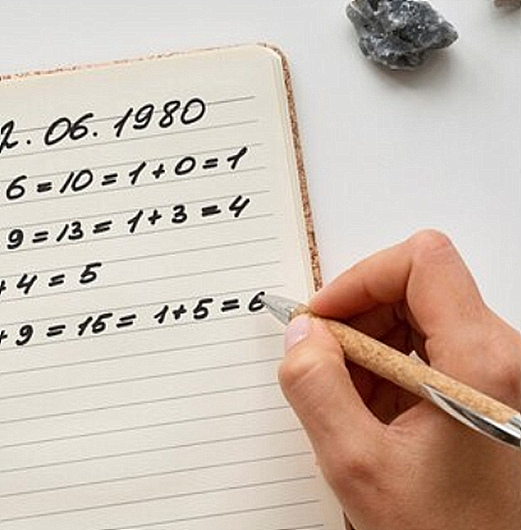 2. 06. 1980
6 = 10 = 1 + 0 = 1
9 = 13 = 1 + 3 = 4
+ 4 = 5
+ 9 = 15 = 1+5 = 6